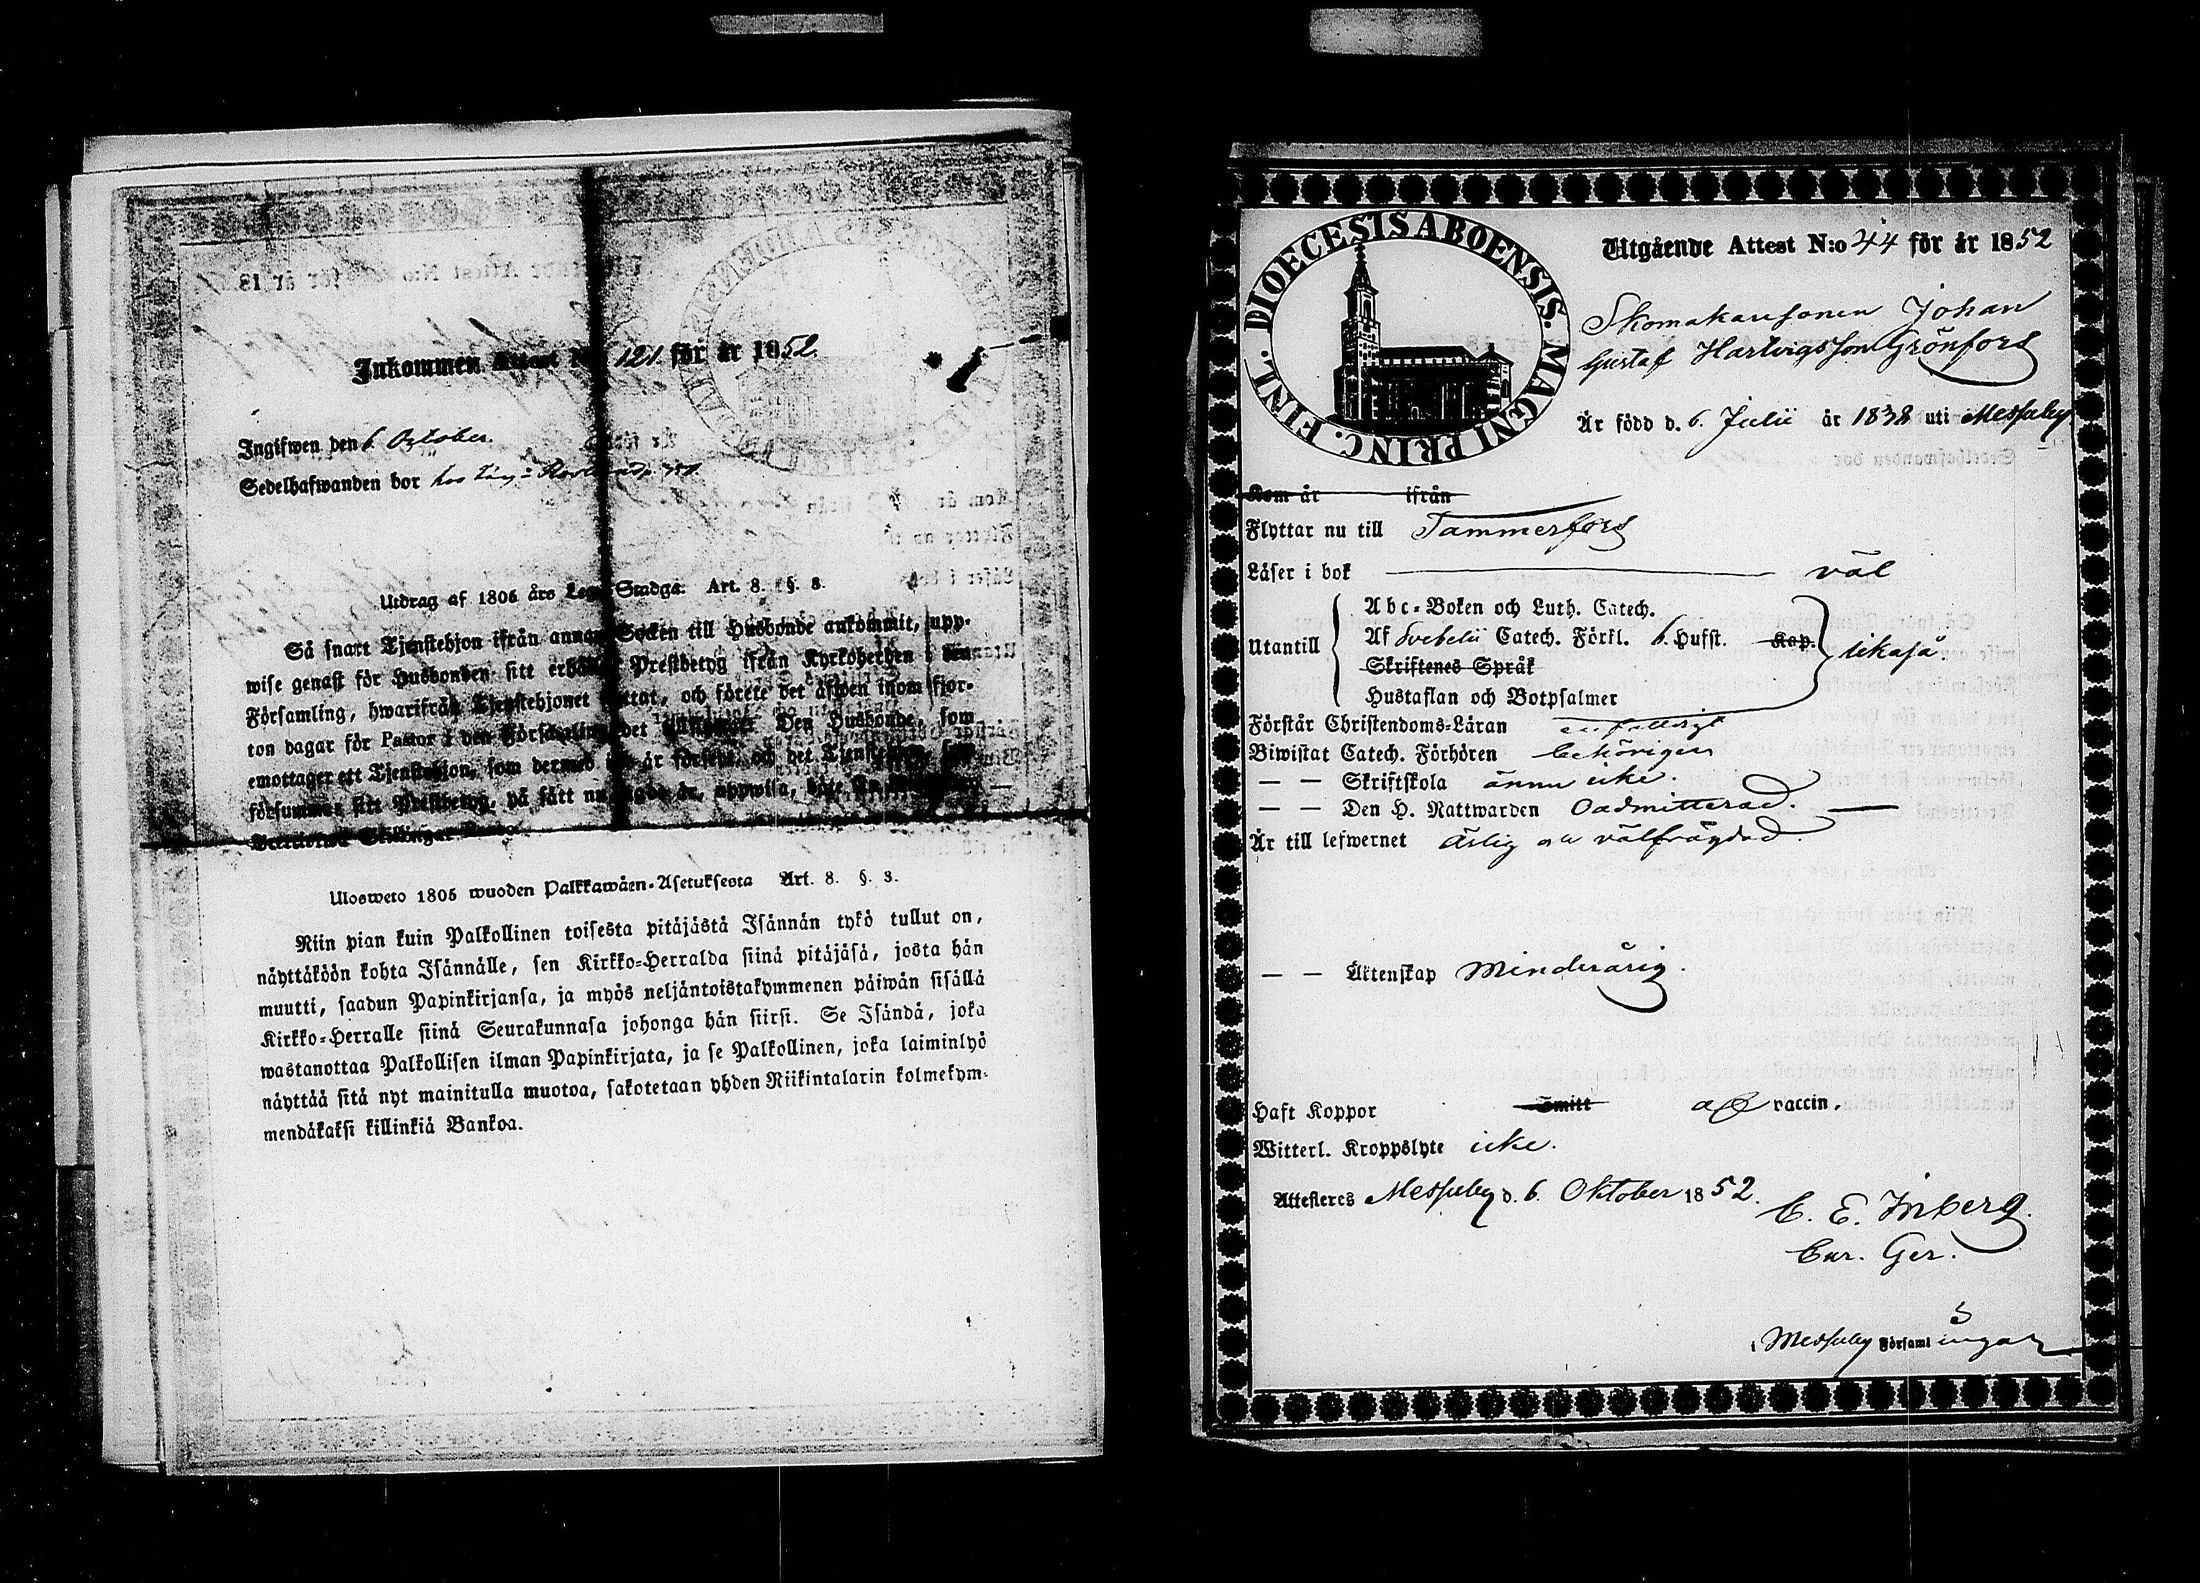 Inkommen Attest N:o 121 för år 1852.
Ingifwen den 6 October.
Sedelhafwanden bor hos
Utdrag af 1805 års Lego-Stadga. Art. 8. §. 3.
Så snart Tjenstehjon ifrån annan Socken till Husbonde ankommit, upp-
wise genast för Husbonden sitt erhållna Prestbetyg ifrån Kyrkoherden i den
Församling, hwarifrån Tjenstehjonet flyttat, och förete det äfwen inom fjor-
ton dagar för Pastor i den Församling det inkommer. Den Husbonde, som
emottager ett Tjenstehjon, som dermed icke är försedt, och det Tjenstehjon, som
försummar sitt Prestbetyg, på sätt nu sagdt är, uppwisa, böte En Riksdaler —
Skillingar Banco.
Ulosweto 1805 wuoden Palkkawäen-Asetuksesta Art. 8. §. 3.
Niin pian kuin Palkollinen toisesta pitäjästä Isännän tykö tullut on,
näyttäköön kohta Isännälle, sen Kirkko-Herralda siinä pitäjäsä, josta hän
muutti, saadun Papinkirjansa, ja myös neljäntoistakymmenen päiwän sisällä
Kirkko-Herralle siinä Seurakunnasa johonga hän siirsi. Se Isändä, joka
wastanottaa Palkollisen ilman Papinkirjata, ja se Palkollinen, joka laiminlyö
näyttää sitä nyt mainitulla muotoa, sakotetaan yhden Riikintalarin kolmekym-
mendäkaksi killinkiä Bankoa.
DIOECESIS ABOENSIS. MAGNI PRINC. FINL.
Utgående Attest N:o 44 för år 1852
Skomakaresonen Johan
Gustaf Hartvigsson Grönfors
Är född d. 6 Julii år 1838 uti Messuby
Kom år ifrån
Flyttar nu till Tammerfors
Läser i bok väl
Abc-Boken och Luth. Catech.
Utantill Af Svebelii Catech. Förkl. 6. Hufst. Kap. likaså.
Skriftenes Språk
Hustaflan och Botpsalmer
Förstår Christendoms-Läran enfalligt
Biwistat Catech. Förhören behörigen
— — Skriftskola ännu icke.
— — Den H. Nattwarden Oadmitterad. —
Är till lefwernet ärlig och välfrägdad.
— — Äktenskap Minderårig.
Haft Koppor Smitt vaccin.
Witterl. Kroppslyte icke.
Attesteres Messuby d. 6. Oktober 1852.
C. E. Inberg.
Cur. Ger.
i Messuby Församl ingar